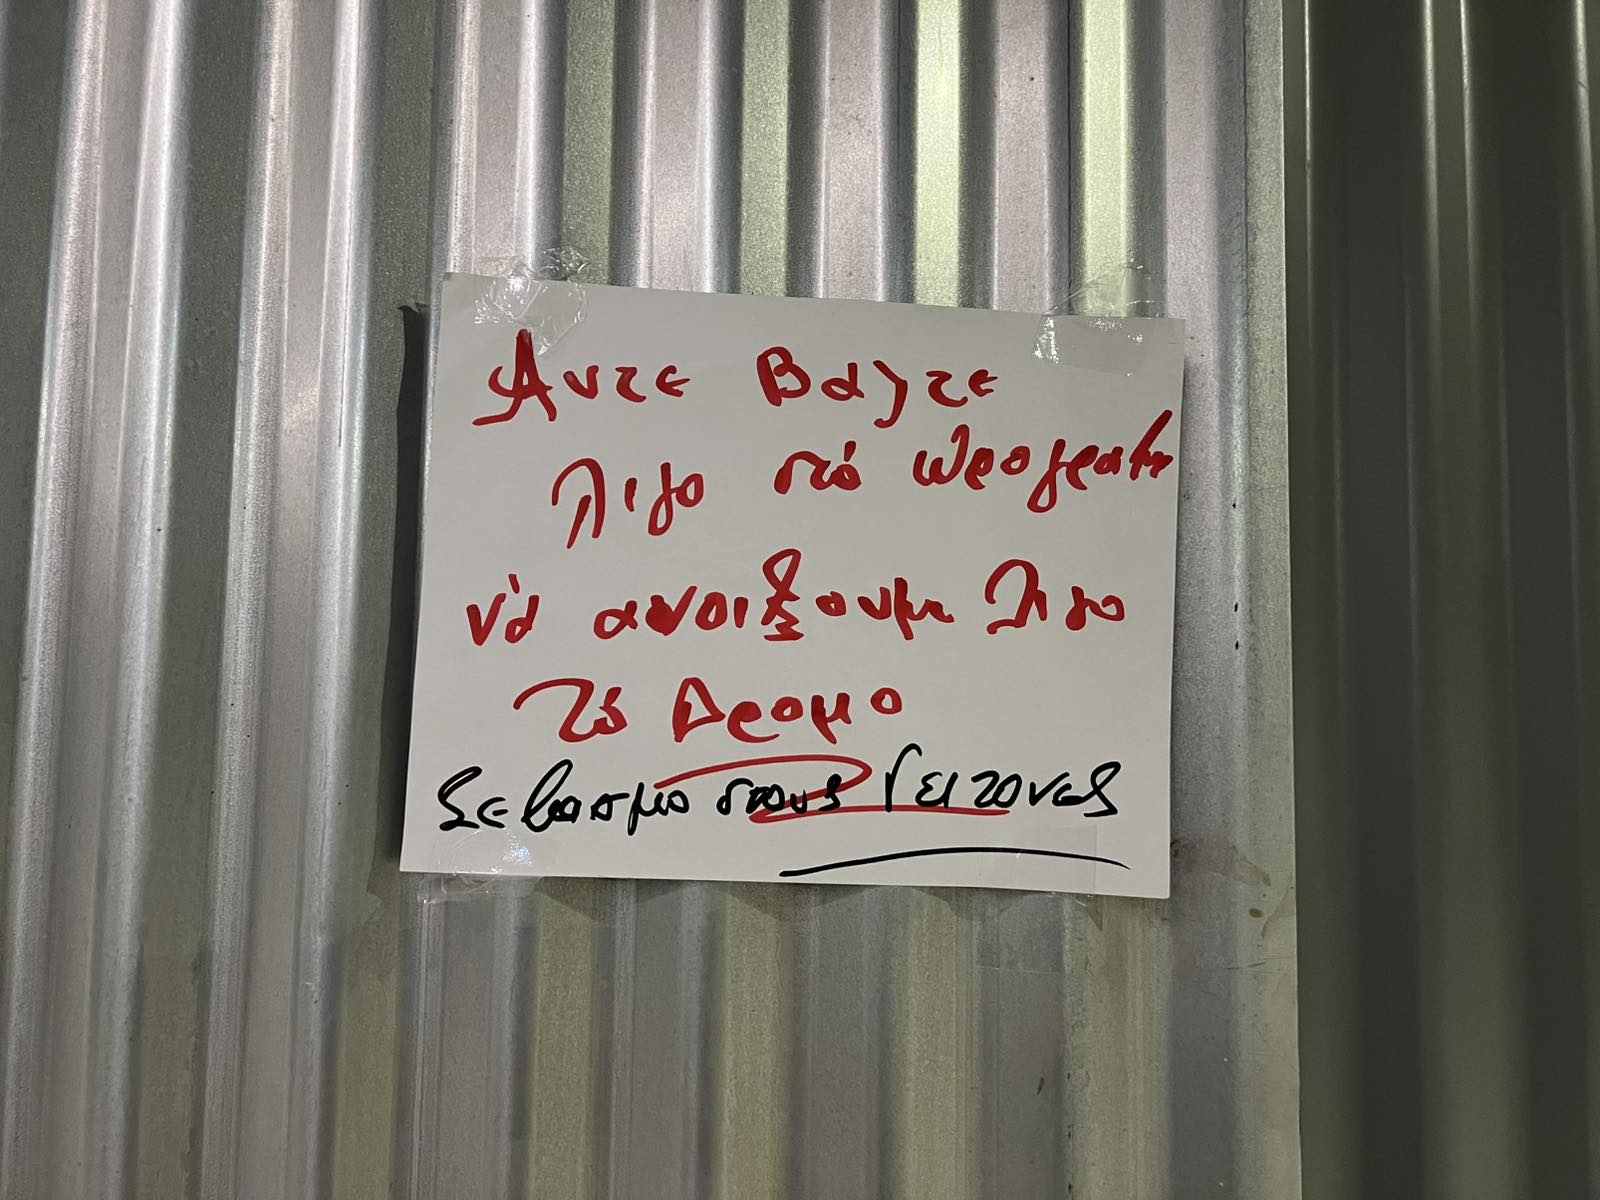 Αντε Βαλτε
λιγο στό προγραμμ
νά ανοιξουμε λιγο
τό Δρομο
Σεβασμο στους Γειτονες